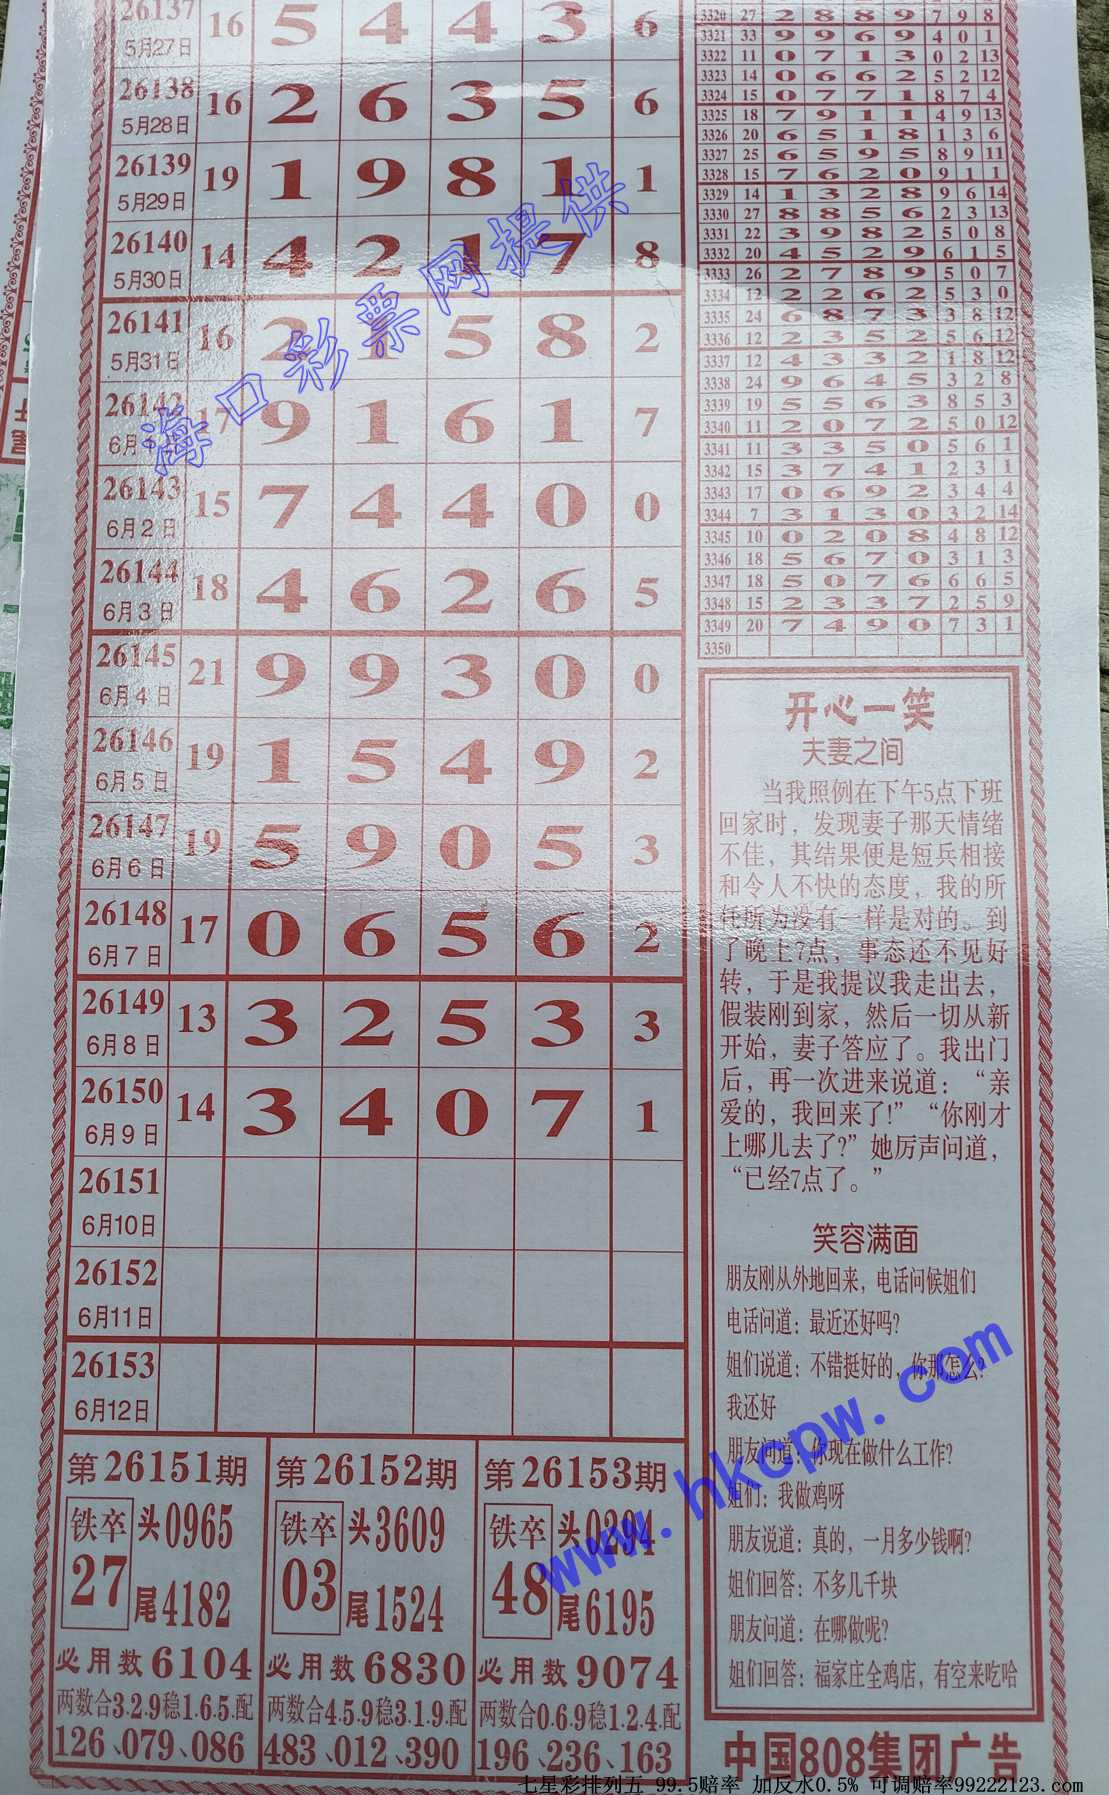 26137 5月27日 16 5 4 4 3 6
26138 5月28日 16 2 6 3 5 6
26139 5月29日 19 1 9 8 1 1
26140 5月30日 14 4 2 1 7 8
26141 5月31日 16 2 1 5 8 2
26142 17 9 1 6 1 7
26143 6月2日 15 7 4 4 0 0
26144 6月3日 18 4 6 2 6 5
26145 6月4日 21 9 9 3 0 0
26146 6月5日 19 1 5 4 9 2
26147 6月6日 19 5 9 0 5 3
26148 6月7日 17 0 6 5 6 2
26149 6月8日 13 3 2 5 3 3
26150 6月9日 14 3 4 0 7 1
26151 6月10日
26152 6月11日
26153 6月12日
第26151期
铁卒 27
头0965
尾4182
必用数6104
两数合3.2.9稳1.6.5.配
126、079、086
第26152期
铁卒 03
头3609
尾1524
必用数6830
两数合4.5.9稳3.1.9.配
483、012、390
第26153期
铁卒 48
头0294
尾6195
必用数9074
两数合0.6.9稳1.2.4.配
196、236、163
3320 27 2 8 8 9 7 9 8
3321 33 9 9 6 9 4 0 1
3322 11 0 7 1 3 0 2 13
3323 14 0 6 6 2 5 2 12
3324 15 0 7 7 1 8 7 4
3325 18 7 9 1 1 4 9 13
3326 20 6 5 1 8 1 3 6
3327 25 6 5 9 5 8 9 11
3328 15 7 6 2 0 9 1 1
3329 14 1 3 2 8 9 6 14
3330 27 8 8 5 6 2 3 13
3331 22 3 9 8 2 5 0 8
3332 20 4 5 2 9 6 1 5
3333 26 2 7 8 9 5 0 7
3334 12 2 2 6 2 5 3 0
3335 24 6 8 7 3 3 8 12
3336 12 2 3 5 2 5 6 12
3337 12 4 3 3 2 1 8 12
3338 24 9 6 4 5 3 2 8
3339 19 5 5 6 3 8 5 3
3340 11 2 0 7 2 5 0 12
3341 11 3 3 5 0 5 6 1
3342 15 3 7 4 1 2 3 1
3343 17 0 6 9 2 3 4 4
3344 7 3 1 3 0 3 2 14
3345 10 0 2 0 8 4 8 12
3346 18 5 6 7 0 3 1 3
3347 18 5 0 7 6 6 6 5
3348 15 2 3 3 7 2 5 9
3349 20 7 4 9 0 7 3 1
3350
开心一笑
夫妻之间
当我照例在下午5点下班
回家时，发现妻子那天情绪
不佳，其结果便是短兵相接
和令人不快的态度，我的所
任所为没有一样是对的。到
了晚上7点，事态还不见好
转，于是我提议我走出去，
假装刚到家，然后一切从新
开始，妻子答应了。我出门
后，再一次进来说道：“亲
爱的，我回来了!”“你刚才
上哪儿去了?”她厉声问道，
“已经7点了。”
笑容满面
朋友刚从外地回来，电话问候姐们
电话问道：最近还好吗?
姐们说道：不错挺好的，你那怎么?
我还好
朋友问道：你现在做什么工作?
姐们：我做鸡呀
朋友说道：真的，一月多少钱啊?
姐们回答：不多几千块
朋友问道：在哪做呢?
姐们回答：福家庄全鸡店，有空来吃哈
中国808集团广告
海口彩票网提供
www.hkcpw.com
七星彩排列五 99.5赔率 加反水0.5% 可调赔率99222123.com